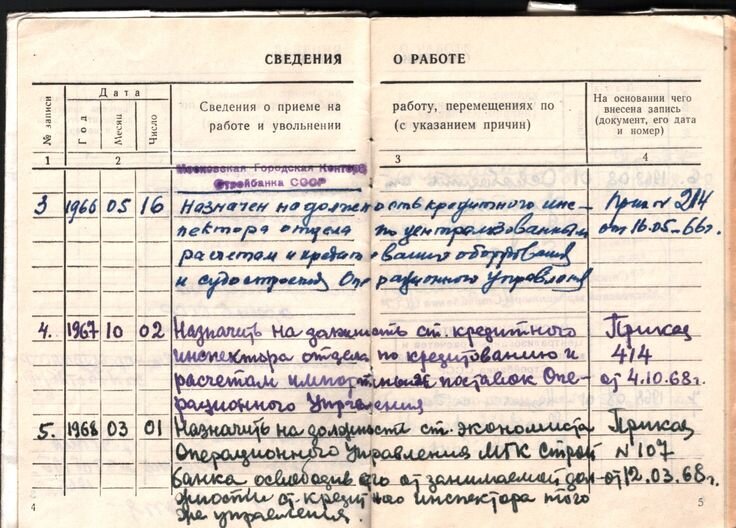 СВЕДЕНИЯ О РАБОТЕ
№ записи
Дата
Год
Месяц
Число
Сведения о приеме на работу, перемещениях по
работе и увольнении (с указанием причин)
На основании чего
внесена запись
(документ, его дата
и номер)
1 2 3 4
Московская Городская Контора
Стройбанка СССР
3 1966 05 16 Назначен на должность кредитного инс- Пр. № 214
пектора отдела по централизованным от 16.05-66г.
расчетам и кредитованию оборудования
и судостроения Операционного Управления
4. 1967 10 02 Назначить на должность ст. кредитного Приказ
инспектора отдела по кредитованию и 414
расчетам импортных поставок Опе- от 4.10.68г.
рационного Управления
5. 1968 03 01 Назначить на должность ст. экономиста Приказ
Операционного Управления МГК Строй N 107
банка освободив его от занимаемой дол- от 12.03.68г.
жности ст. кредитного инспектора того
же управления.
4 5